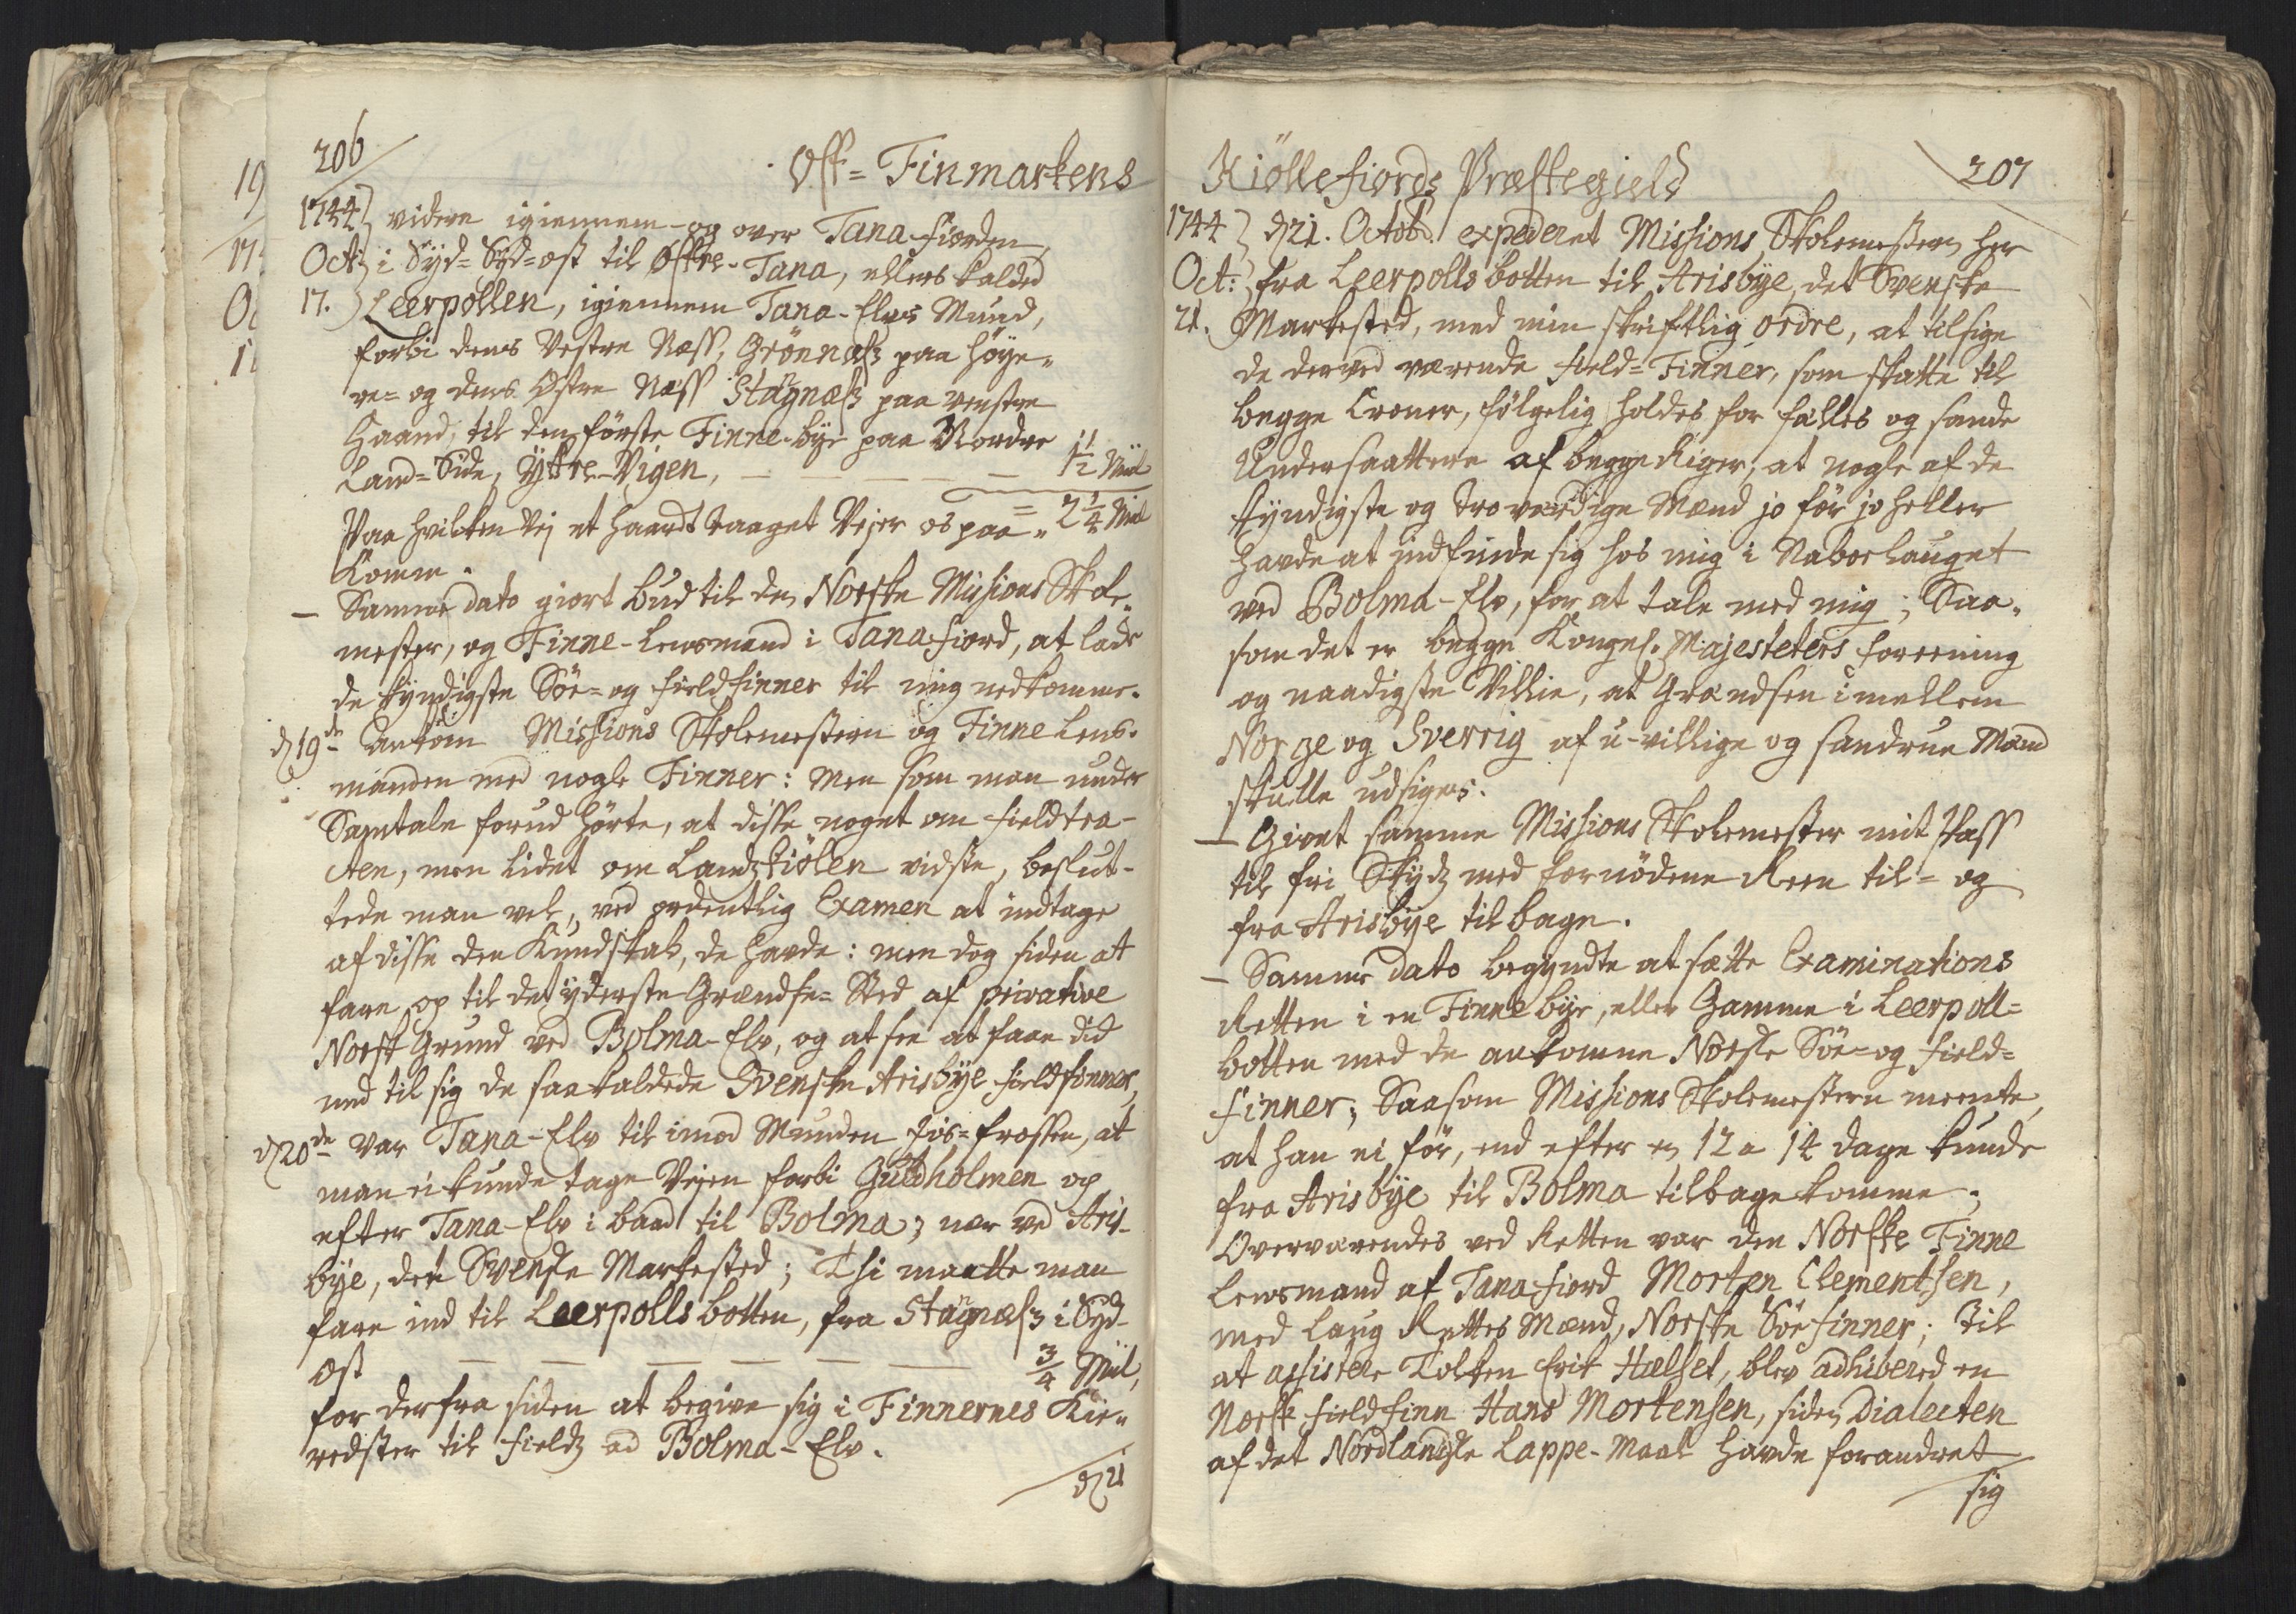 206
Ost-Finmarkens
1744 videre igiennem- og over Tana-fiorden,
Oct: i Syd-Syd-ost til Østre-Tana, ellers kalded
17. Leerpollen, igiennem Tana-Elvs Mund,
forbi dens Vestre Næss, Grönnæss paa höye-
re- og dens Östre Næss Stagnæss paa venstre
Haand, til den förste Finne-bye paa Nordre
Land-Side, Yttre-Vigen, — — — — 1½ Miil
Paa hvilken Vej et haardt taaget Vejer os paa- = 2¼ Miil
komm.
— Samme dato giort bud til den Norske Missions Skole-
mester, og Finne-Lensmand i Tanafiord, at lade
de kyndigste Söe- og fieldfinner til mig nedkomme.
d 19de Ankom Missions Skolemesteren og Finne Lens-
manden med nogle Finner: Men som man under
Samtale forud hörte, at disse noget om fieldtra-
cten, men lidet om Landzkiölen vidste, beslut-
tede man vel, ved ordentlig Examen at indtage
af disse den Kundskab, de havde: men dog siden at
fare op til det yderste Grændse-Sted af privative
Norsk Grund ved Bolma-Elv, og at see at faae did
ned til sig de saakaldede Svenske Arisbye fieldfinner,
d 20de Var Tana-Elv til imod Munden iis-frossen, at
man ei kunde tage Vejen forbi Guldholmen op
efter Tana-Elv i baad til Bolma; nær ved Aris-
bye, det Svenske Markested; Thi maatte man
fare ind til Leerpollsbotten, fra Stagnæss i Syd-
Ost — — — — — — ¾ Miil,
for derfra siden at begive sig i Finnernes Kie-
redster til fieldz ad Bolma-Elv.
d 21
Kiöllefiords Præstegield
207
1744 d 21. Octobr. expederet Missions Skolemesteren her
Oct: fra Leerpollsbotten til Arisbye, det Svenske
21. Markested, med min skriftlig ordre, at tilsige
de derved værende field-Finner, som skatte til
begge Croner, fölgelig holdes for fælles og sande
Undersaattere af begge Riger, at nogle af de
kyndigste og troværdige Mænd jo för jo heller
havde at indfinde sig hos mig i Naboelauget
ved Bolma-Elv, for at tale med mig; Saa-
som det er begge Kongel. Majesteters foreening
og naadigste Villie, at Grændsen imellem
Norge og Sverrig af u-villige og sandrue Mænd
skulle udsiges.
— Givet samme Missions Skolemester mit Pass
til fri Skydz med fornödene Reen til- og
fra Arisbye tilbage.
— Samme dato begyndte at sætte Examinations
Retten i en Finnebye, eller Gamme i Leerpoll-
botten med de ankomne Norske Söe- og field-
finner; Saasom Missions Skolemesteren meente,
at han ei för, end efter en 12 a 14 dage kunde
fra Arisbye til Bolma tilbagekomme;
Overværendes ved Retten var den Norske Finne
Lensmand af Tanafiord Morten Clementsen,
med Laug Rettes Mænd, Norske Söefinner; til
at assistere Tolken Erik Hælset, blev adhibered en
Norsk fieldfinn Hans Mortensen, siden Dialecten
af det Nordlandske Lappe-Maal havde forandret
sig